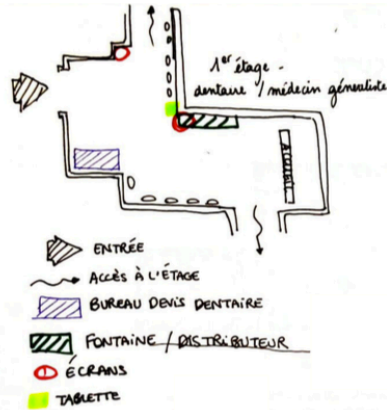 1er étage -
dentaire / médecin généraliste
ACCUEIL
ENTRÉE
ACCÈS À L'ÉTAGE
BUREAU DEVIS DENTAIRE
FONTAINE / DISTRIBUTEUR
ÉCRANS
TABLETTE